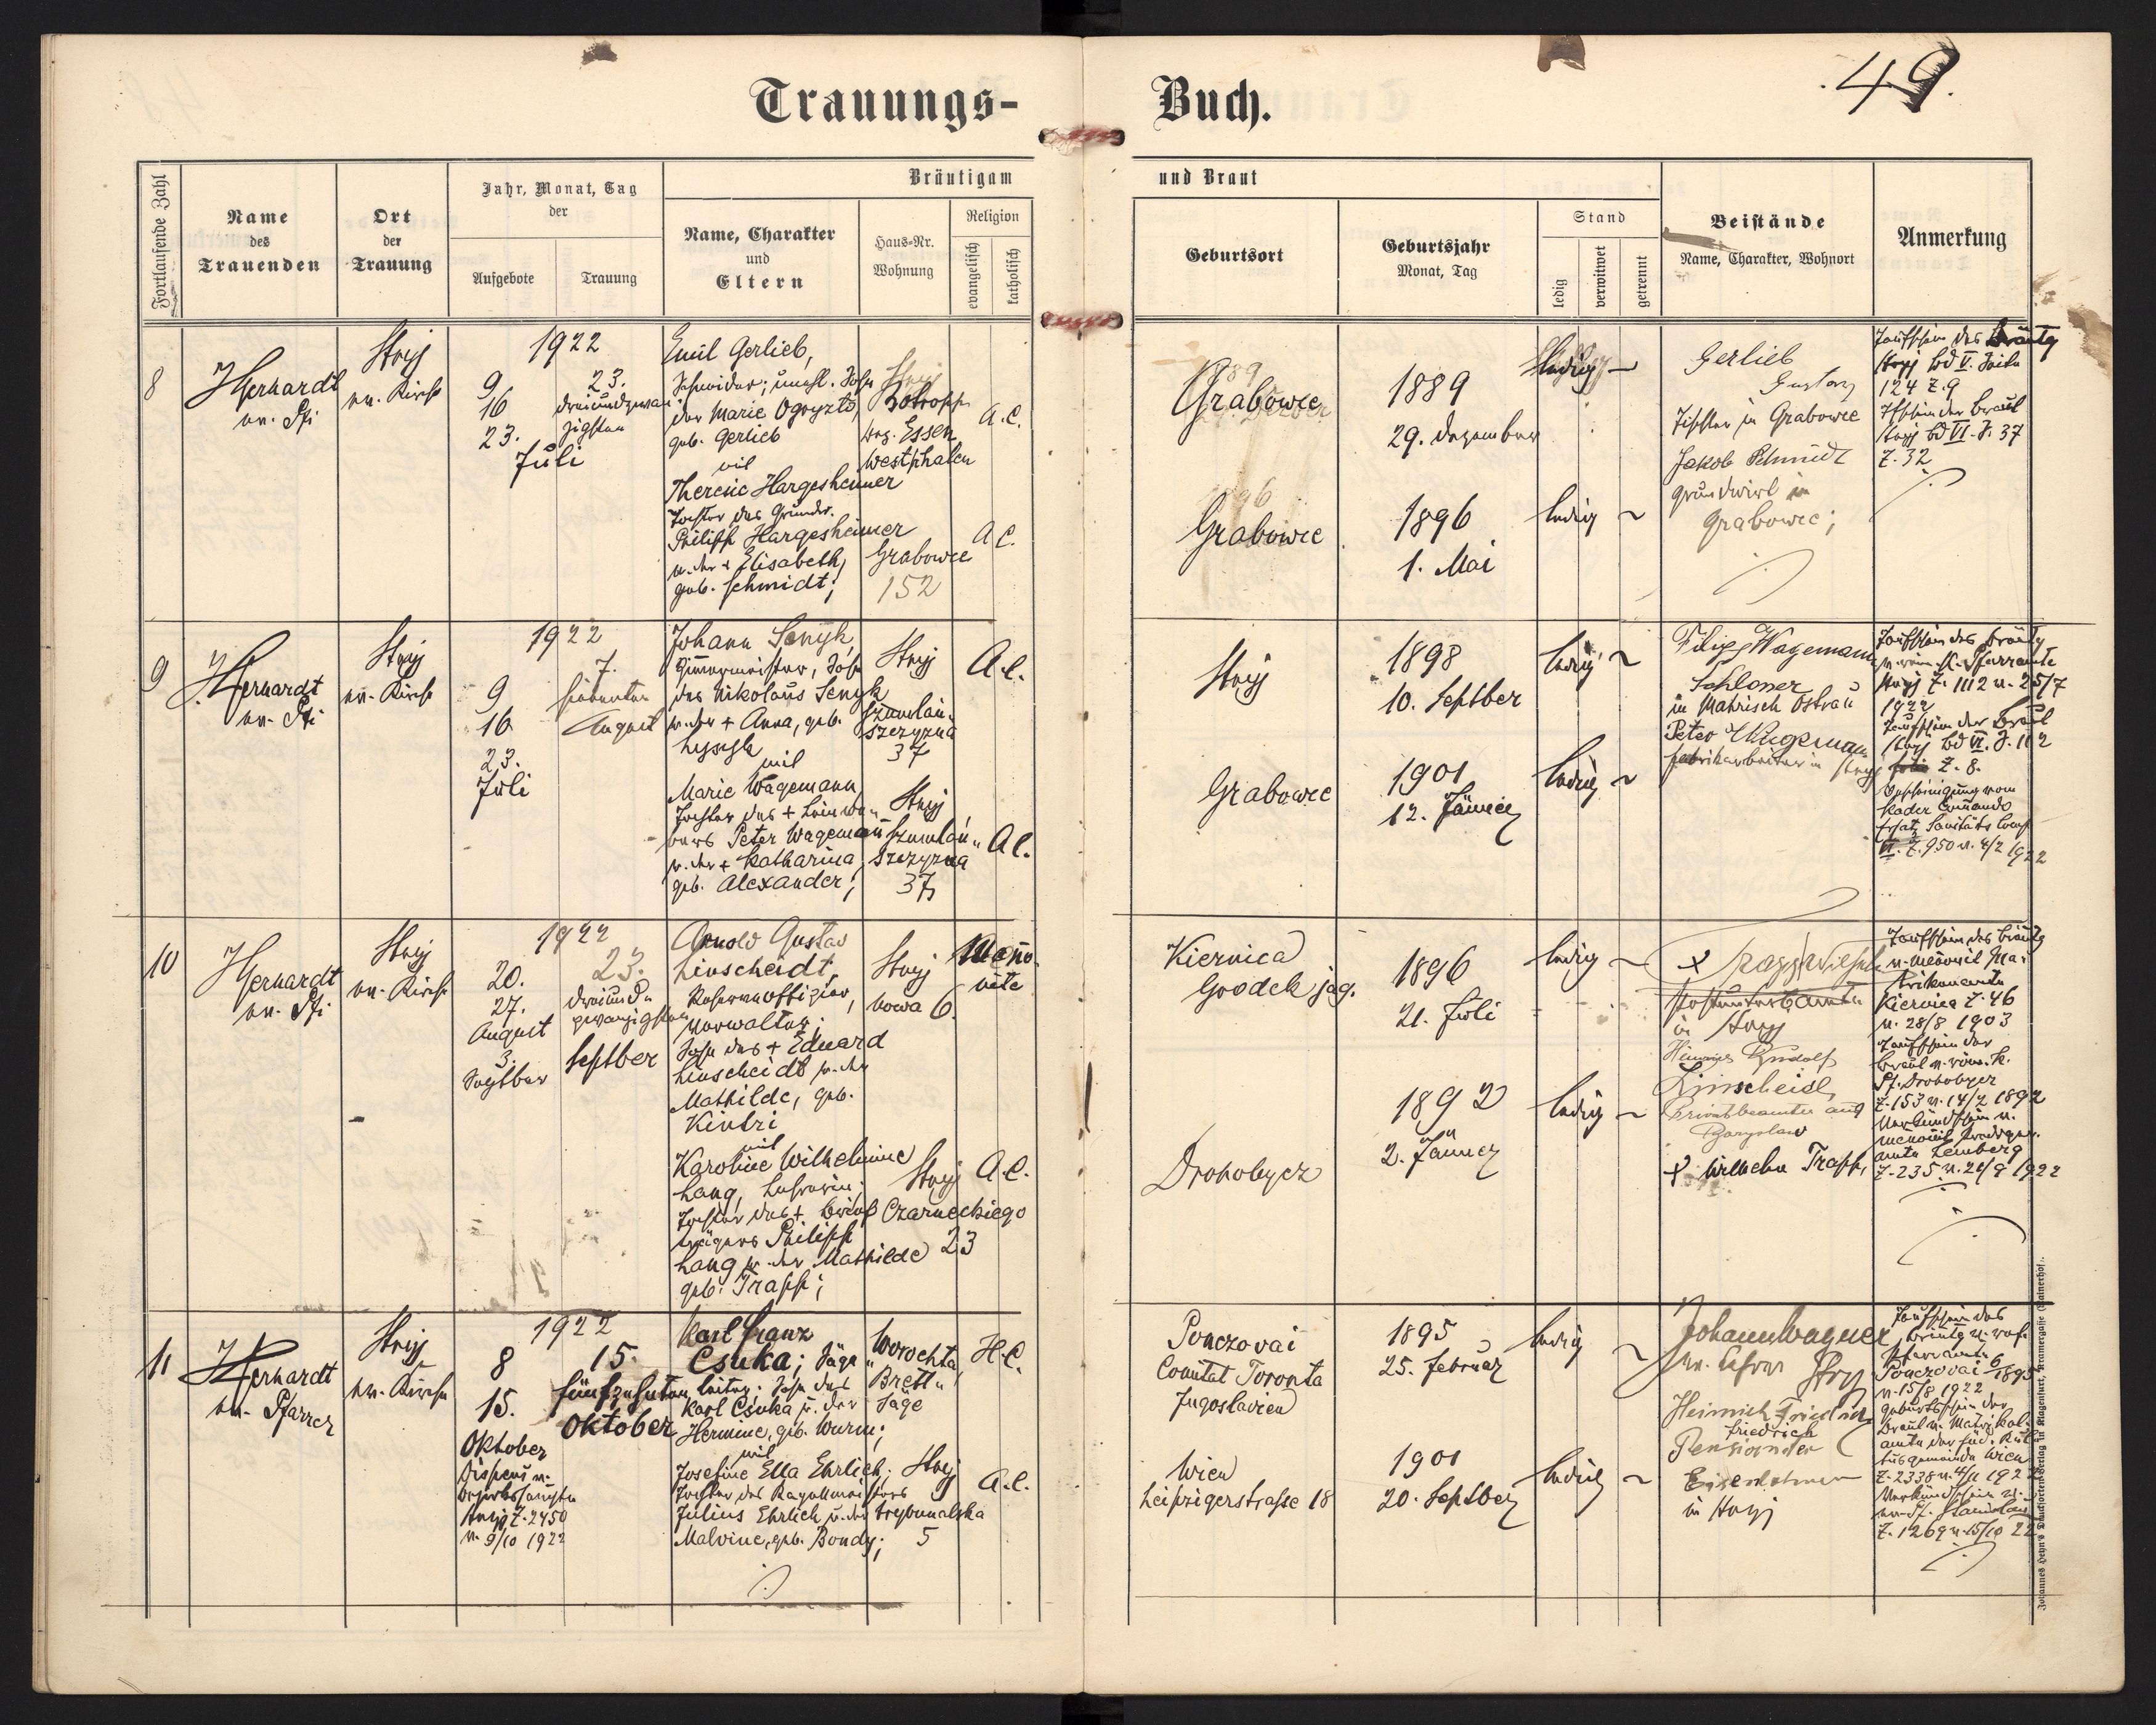 Trauungs-Buch.
49.
Fortlaufende Zahl
Name
des
Trauenden
Ort
der
Trauung
Jahr, Monat, Tag
der
Aufgebote
Trauung
Bräutigam und Braut
Name, Charakter
und
Eltern
Haus-Nr.
Wohnung
Religion
evangelisch
katholisch
Geburtsort
Geburtsjahr
Monat, Tag
Stand
ledig
verwitwet
getrennt
Beistände
Name, Charakter, Wohnort
Anmerkung
8
Stryj
ev. Kirche
1922
9
16
23.
Juli
23.
dreiundzwan
zigsten
Emil Gerlieb,
Schneider; unehl. Sohn
der Marie Ogryzlo,
geb. Gerlieb
mit
Therese Hargesheimer
Tochter des Grundw.
Philipp Hargesheimer
u. der + Elisabeth,
geb. Schmidt;
Bottropp
bez. Essen
Westphalen
Grabowce
152
A.C.
A.C.
Grabowce
1889
29. Dezember
ledig
Grabowce
1896
1. Mai
ledig
Gerlieb
Gustav
Tischler in Grabowce
Jakob Schmidt
Grundwirt in
Grabowce;
Taufschein des Bräutg
Stryj Bd V. Seite
124 Z. 9
Tfschein der Braut
Stryj Bd VI. S. 37
Z. 32
9
Stryj
ev. Kirche
1922
9
16
23.
Juli
7.
siebenten
August
Johann Senyk,
Zimmermeister, Sohn
des Nikolaus Senyk
u. der + Anna, geb.
mit
Marie Wagemann,
Tochter des + Leinwe-
bers Peter Wagemann
u. der + Katharina,
geb. Alexander;
Stryj
Szumlań-
szczyzna
37
Stryj
Szumlań-
szczyzna
37
A.C.
A.C.
Stryj
1898
10. Septber
ledig
Grabowce
1901
12. Jänner
ledig
Filipp Wagemann
Schlosser
in Mährisch Ostrau
Peter Wagemann
Fabrikarbeiter in Stryj
Taufschein des Bräutg
Stryj Z. 1112 v. 25/7
1922
Taufschein der Braut
Stryj Bd VI. S. 112
Z. 8.
Bescheinigung vom
Kader Comando
Ersatz Sanitäts Comp
VI. Z. 950 v. 4/2 1922
10
Stryj
ev. Kirche
1922
20.
27.
August
3.
Septber
23.
dreiund-
zwanzigsten
Septber
Arnold Gustav
Linscheidt,
Reserveoffizier,
Verwalter;
Sohn des + Eduard
Linscheidt u. der
Mathilde, geb.
Kintzi
mit
Karoline Wilhelmine
Lang, Lehrerin;
Tochter des + Brief
trägers Philipp
Lang u. der Mathilde
geb. Trapp;
Stryj
Nowa 6.
Stryj
Czarneckiego
23
Meno
nite
A.C.
Kiernica
Grodek jag.
1896
21. Juli
ledig
Drohobycz
1892
2. Jänner
ledig
Postunterbeamter
in Stryj
Rudolf
Linscheid,
Privatbeamter aus
Boryslaw
x Wilhelm Trapp,
Taufschein des Bräutg
v. menonit. Ma-
trikenamte
Kiernica Z. 46
v. 28/8 1903
Taufschein der
Braut v. röm. k.
Pf. Drohobycz
Z. 153 v. 14/2 1892
Verkündschein v.
menonit. Prediger-
amte Lemberg
Z. 235 v. 20/8 1922
11
Stryj
ev. Kirche
1922
8
15.
Oktober
Dispens v.
Stryj Z. 2450
v. 9/10 1922
15.
fünfzehnten
Oktober
Karl Franz
Csuka; Säge-
leiter; Sohn des
Karl Csuka u. der
Hermine, geb. Wurm;
mit
Josefine Ella Ehrlich;
Tochter des Kapellmeisters
Julius Ehrlich u. der
Malvine, geb. Bondy;
Worochta,
Brett-
säge
Stryj
Trybunalska
5
H.C.
A.C.
Comitat Toronta
Jugoslavien
1895
25. Februar
ledig
Wien
Leipzigerstrasse 18
1901
20. Septber
ledig
Johann Wagner
ev. Lehrer Stryj
Heinrich Friedrich
Friedrich
Pensionierter
in Stryj
Taufschein des
Bräutg v. ref.
Pfarramte
v. 15/8 1922
Geburtsschein der
Braut v. Matrikel-
amte der isr. Kul-
tusgemeinde Wien
Verkündschein v.
ev. Pf. Stanislau
Z. 1269 v. 15/10 22
Johannes Heyn's Drucksorten-Verlag in Klagenfurt, Kramergasse